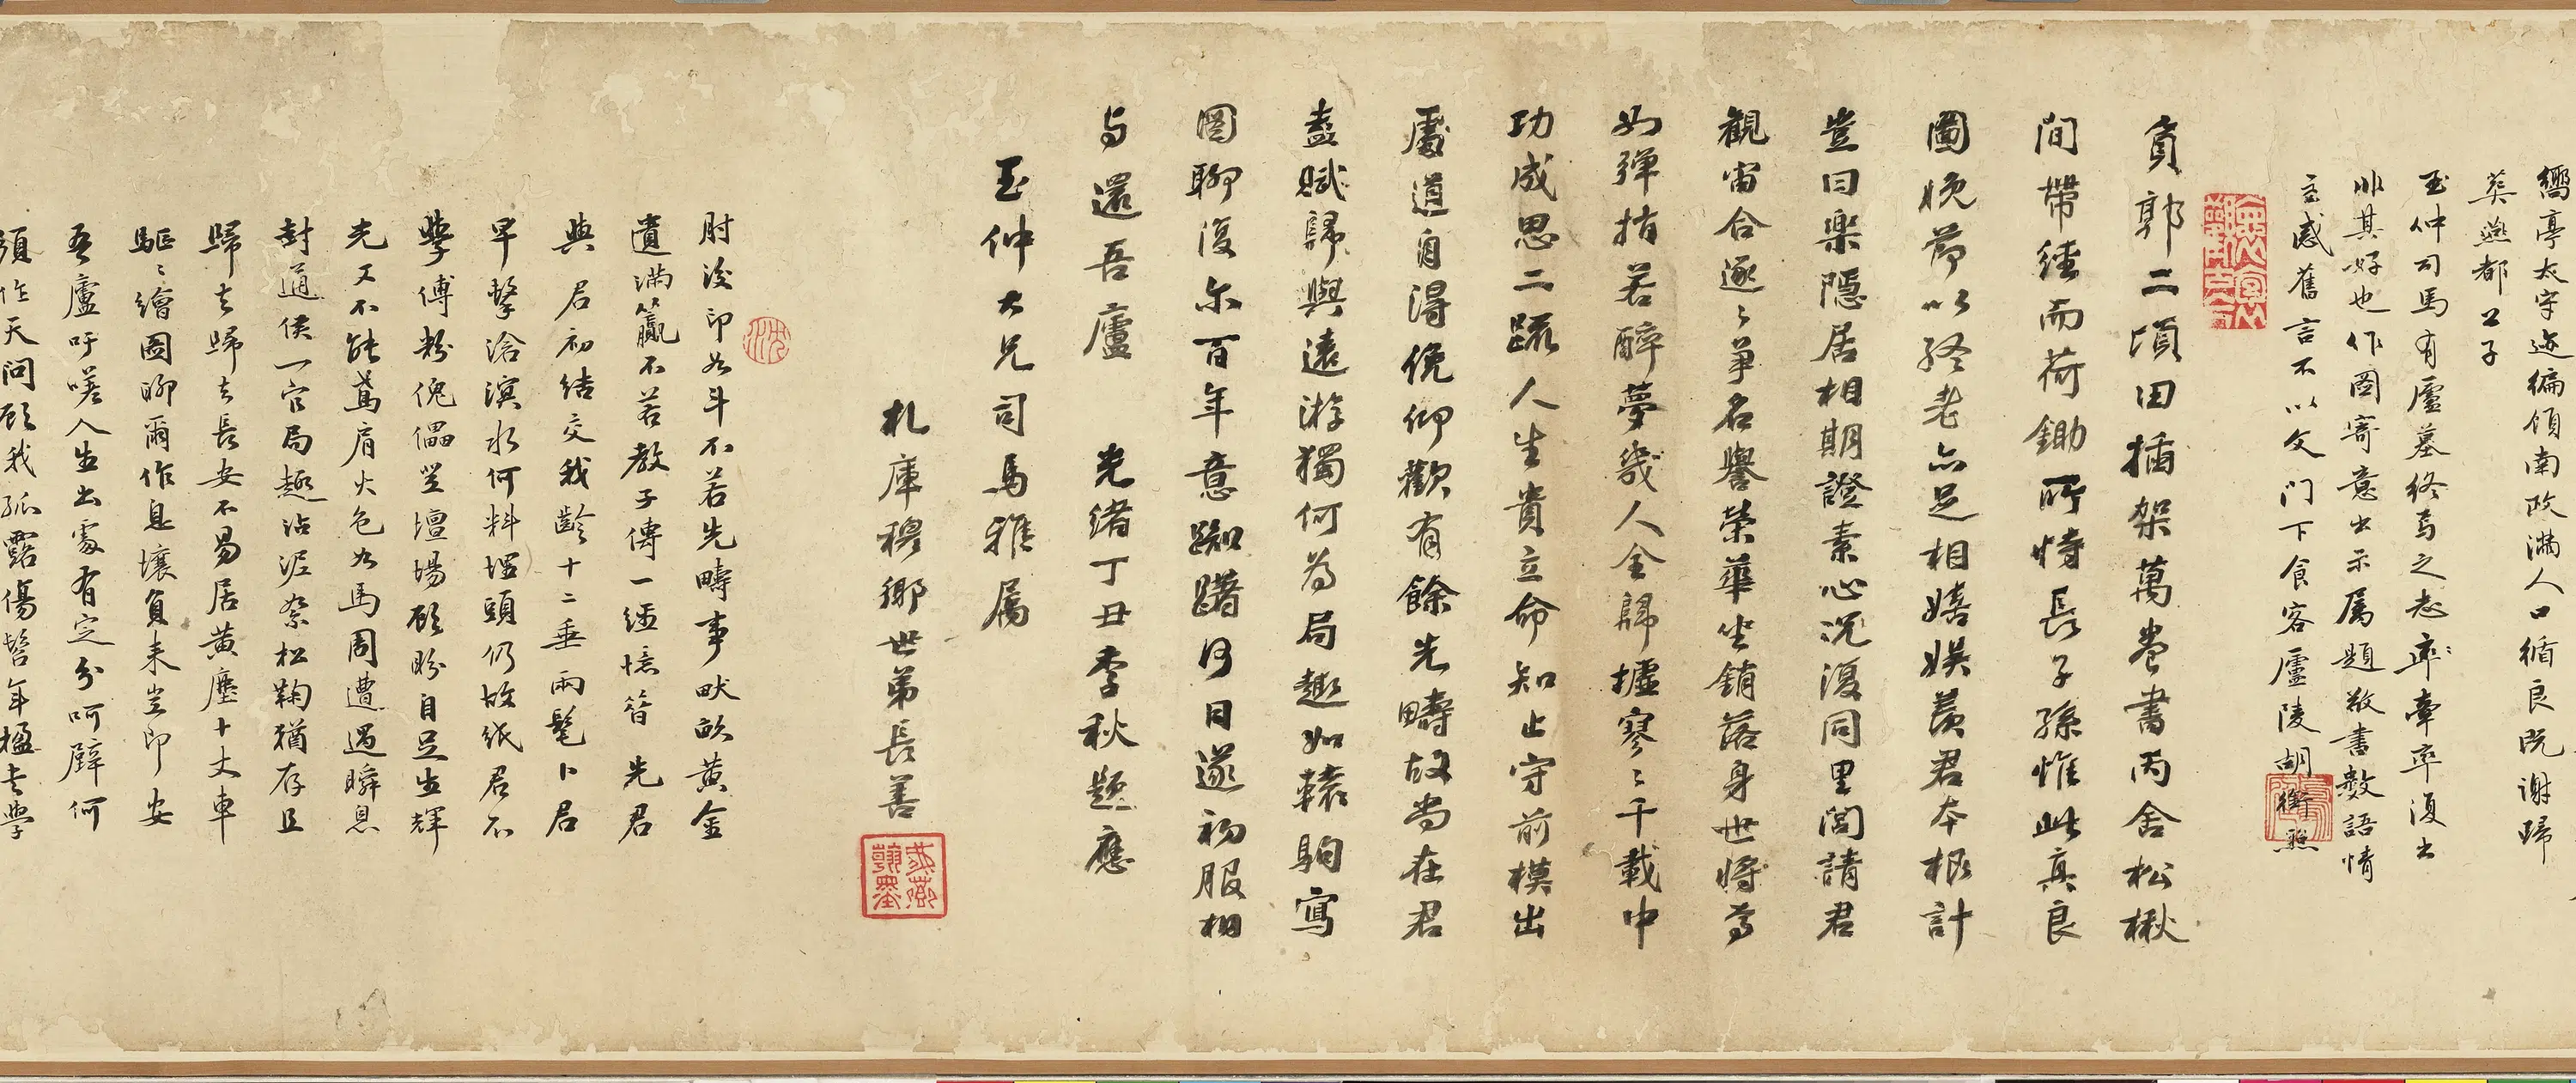 嶰亭太守遊徧領南政滿人口循良既謝歸
英巡都公子
玉仲司馬有廬墓終焉之志牽率復出
非其好也作圖寄意出示屬題敬書數語情
言不以文門下食客廬陵胡衡
負郭二頃田插架萬卷書丙舍松楸
間帶經而荷鋤所恃長子孫惟此真良
圖晚節以終老亦足相嬉娛羨君本根計
豈曰樂隱居相期證素心況復同里閭請君
觀宙合逐逐爭名譽榮華坐銷落身世將焉
如彈指若醉夢幾人全歸墟寥寥千載中
功成思二疏人生貴立命知止守前模出
處道自得俛仰歡有餘先疇故尚在君
盍賦歸與遠游獨何為局趣如轅駒寫
圖聊復尔百年意踟躇何日遂初服相
与還吾廬 光緒丁丑季秋題應
玉仲大兄司馬雅屬
札庫穆鄉世弟長善
肘後印如斗不若先疇事畎畝黃金
遺滿籝不若教子傳一經憶昔先君
與君初結交我齡十二垂兩髦卜君
早擊滄溟水何料埋頭仍故紙君不
學傅粉傀儡登壇場顧盼自足生輝
光又不能鳶肩火色如馬周遭遇瞬息
封通侯一官局趣沾泥絮松鞠猶存且
歸去歸去長安不易居黃塵十丈車
驅驅繪圖聊爾作息壤負耒豈即安
吾廬吁嗟人生出處有定分呵壁何
須作天問顧我孤露傷髫年楹書學